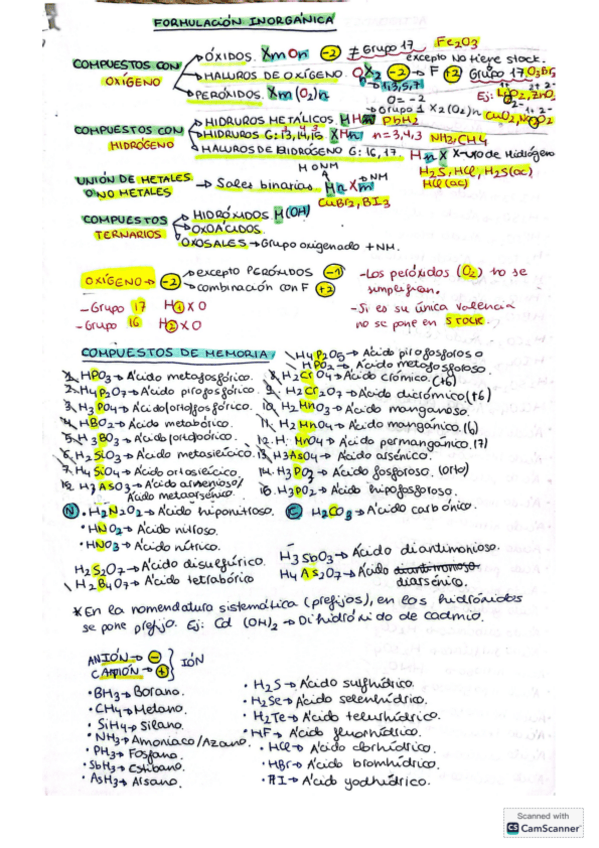 FORMULACIÓN INORGÁNICA
COMPUESTOS CON OXÍGENO
→ ÓXIDOS. XmOn -2 ≠ Grupo 17 Fe2O3
excepto No tiene stock.
→ HALUROS DE OXÍGENO. OX2 -2 → F +2 Grupo 17 O3Br2
→ 1,3,5,7
→ PERÓXIDOS. Xm(O2)n
O = -2
Grupo 1 X2(O2)n
Ej: Li2O2, ZnO2
CuO2, Na2O2
COMPUESTOS CON HIDRÓGENO
→ HIDRUROS METÁLICOS. MHn PbH2
→ HIDRUROS G: 13,14,15 XHn n=3,4,3 NH3, CH4
→ HALUROS DE HIDRÓGENO G: 16, 17. HnX X-uro de Hidrógeno
H2S, HCl, H2S(ac)
HCl (ac)
UNIÓN DE METALES O NO METALES → Sales binarias. MnXm
M o NM
NM
CuBr2, BI3
COMPUESTOS TERNARIOS
→ HIDRÓXIDOS M(OH)
→ OXOÁCIDOS.
→ OXOSALES → Grupo oxigenado + NM.
OXÍGENO → -2
→ excepto PERÓXIDOS -1
→ combinación con F +2
- Grupo 17 H1XO
- Grupo 16 H2XO
- Los peróxidos (O2) no se simplifican.
- Si es su única valencia no se pone en STOCK.
COMPUESTOS DE MEMORIA:
H4P2O5 → Ácido pirofosforoso
HPO2 → Ácido metafosforoso
1. HPO3 → Ácido metafosfórico.
2. H4P2O7 → Ácido pirofosfórico.
3. H3PO4 → Ácido (orto)fosfórico.
4. HBO2 → Ácido metabórico.
5. H3BO3 → Ácido (orto)bórico.
6. H2SiO3 → Ácido metasilícico.
7. H4SiO4 → Ácido ortosilícico.
H3AsO3 → Ácido arsenioso/
Ácido metaarsénico.
8. H2CrO4 → Ácido crómico. (+6)
9. H2Cr2O7 → Ácido dicrómico (+6)
10. H2MnO3 → Ácido manganoso.
11. H2MnO4 → Ácido mangánico. (6)
12. H MnO4 → Ácido permangánico. (7)
13. H3AsO4 → Ácido arsénico.
14. H3PO3 → Ácido fosforoso. (orto)
H3PO2 → Ácido hipofosforoso.
N • H2N2O2 → Ácido hiponitroso.
• HNO2 → Ácido nitroso.
• HNO3 → Ácido nítrico.
C H2CO3 → Ácido carbónico.
H2S2O7 → Ácido disulfúrico.
H2B4O7 → Ácido tetrabórico
H3SbO3 → Ácido diantimonioso.
H4As2O7 → Ácido diantimonioso
diarsénico.
* En la nomenclatura sistemática (prefijos), en los hidróxidos
se pone prefijo. Ej: Cd (OH)2 → Dihidróxido de cadmio.
ANIÓN → -
CATIÓN → +
IÓN
• BH3 → Borano.
• CH4 → Metano.
• SiH4 → Silano.
• NH3 → Amoniaco/Azano.
• PH3 → Fosfano.
• SbH3 → Estibano.
• AsH3 → Arsano.
• H2S → Ácido sulfhídrico.
• H2Se → Ácido selenhídrico.
• H2Te → Ácido telurhídrico.
• HF → Ácido fluorhídrico.
• HCl → Ácido clorhídrico.
• HBr → Ácido bromhídrico.
• HI → Ácido yodhídrico.
Scanned with
CS CamScanner